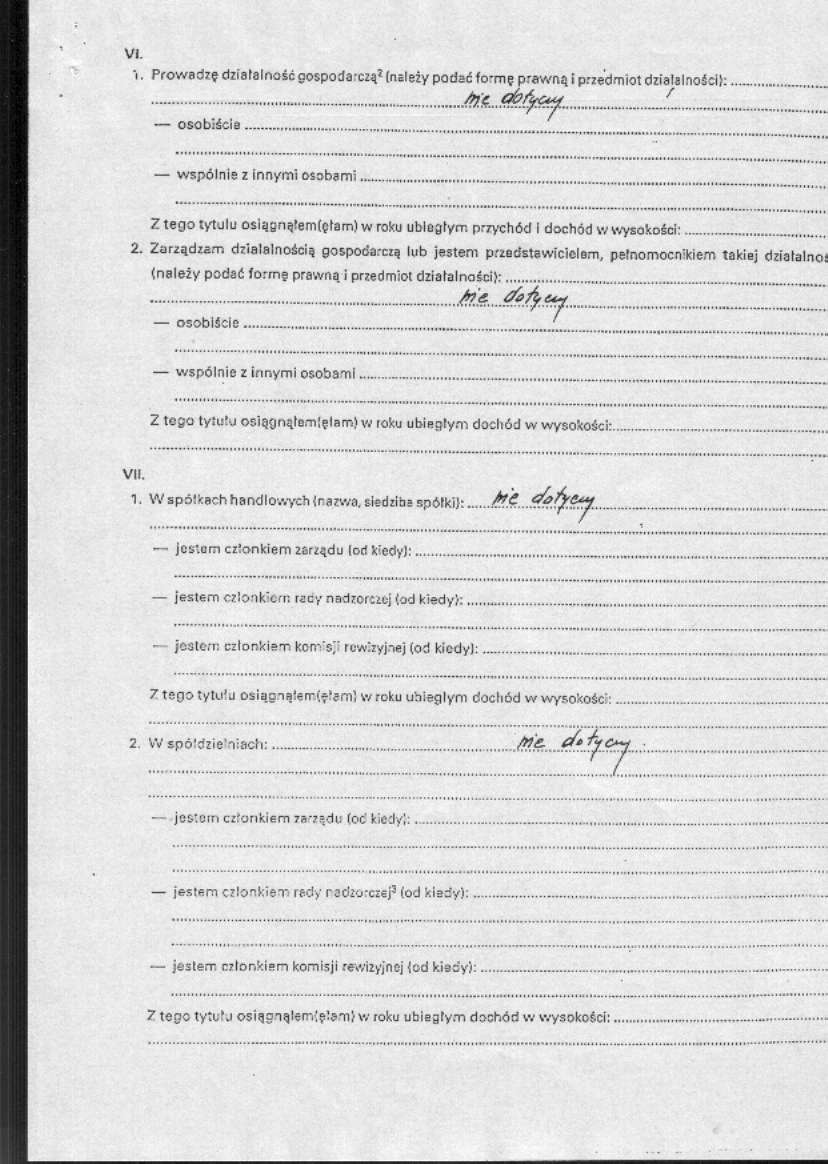 VI.
1. Prowadzę działalność gospodarczą² (należy podać formę prawną i przedmiot działalności): ....................
.................... nie dotyczy ....................
— osobiście ....................
....................
— wspólnie z innymi osobami ....................
....................
Z tego tytułu osiągnąłem(ęłam) w roku ubiegłym przychód i dochód w wysokości: ....................
2. Zarządzam działalnością gospodarczą lub jestem przedstawicielem, pełnomocnikiem takiej działalnoś
(należy podać formę prawną i przedmiot działalności): ....................
.................... nie dotyczy ....................
— osobiście ....................
....................
— wspólnie z innymi osobami ....................
....................
Z tego tytułu osiągnąłem(ęłam) w roku ubiegłym dochód w wysokości: ....................
....................
VII.
1. W spółkach handlowych (nazwa, siedziba spółki): .......... nie dotyczy ....................
....................
— jestem członkiem zarządu (od kiedy): ....................
....................
— jestem członkiem rady nadzorczej (od kiedy): ....................
....................
— jestem członkiem komisji rewizyjnej (od kiedy): ....................
....................
Z tego tytułu osiągnąłem(ęłam) w roku ubiegłym dochód w wysokości: ....................
....................
2. W spółdzielniach: .................... nie dotyczy ....................
....................
....................
— jestem członkiem zarządu (od kiedy): ....................
....................
....................
— jestem członkiem rady nadzorczej³ (od kiedy): ....................
....................
....................
— jestem członkiem komisji rewizyjnej (od kiedy): ....................
....................
Z tego tytułu osiągnąłem(ęłam) w roku ubiegłym dochód w wysokości: ....................
....................